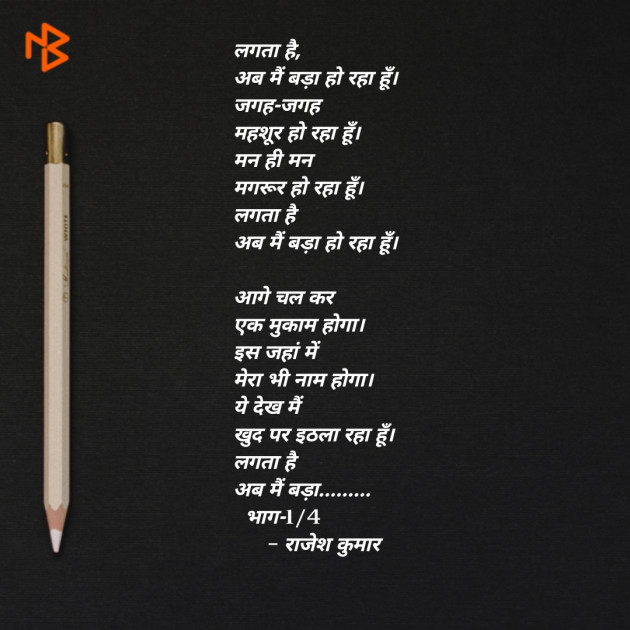 लगता है,
अब मैं बड़ा हो रहा हूँ।
जगह-जगह
महशूर हो रहा हूँ।
मन ही मन
मगरूर हो रहा हूँ।
लगता है
अब मैं बड़ा हो रहा हूँ।
आगे चल कर
एक मुकाम होगा।
इस जहां में
मेरा भी नाम होगा।
ये देख मैं
खुद पर इठला रहा हूँ।
लगता है
अब मैं बड़ा.........
भाग-1/4
- राजेश कुमार
WHITE